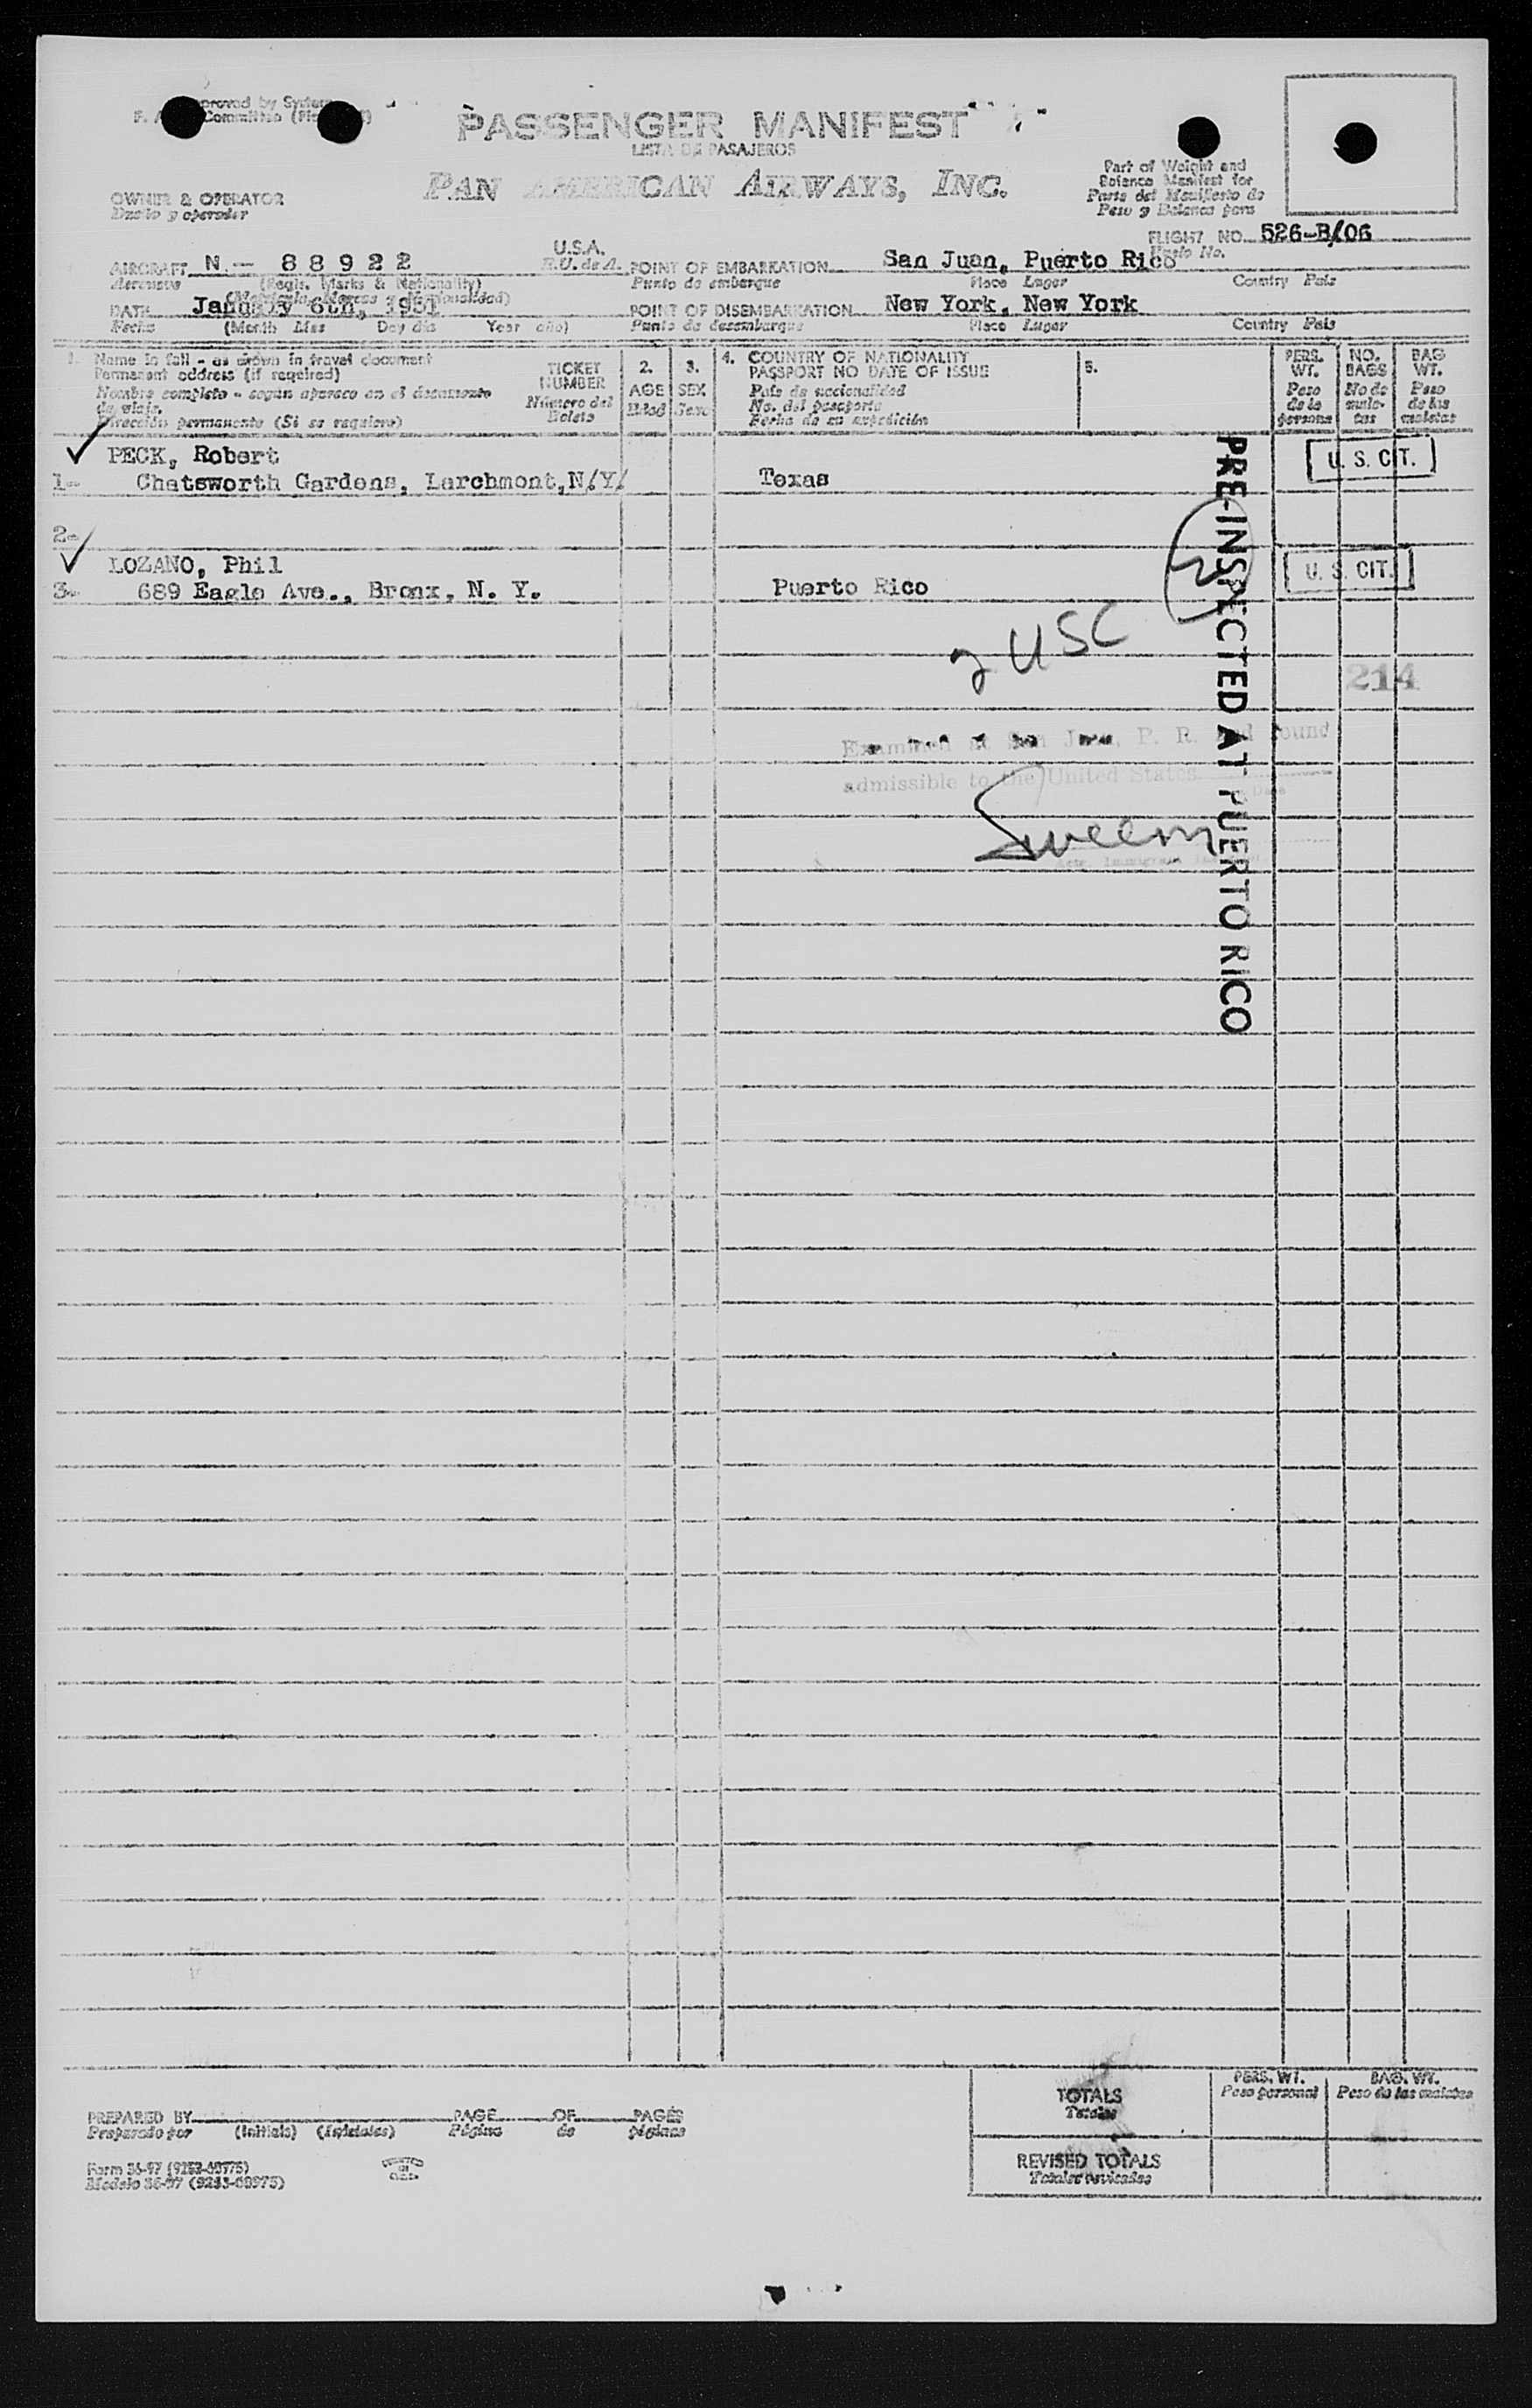 PASSENGER MANIFEST
LISTA DE PASAJEROS
PAN AMERICAN AIRWAYS, INC.
proved by System
Committee
OWNER & OPERATOR
Dueño y operador
Part of Weight and
Balance Manifest for
Parte del Manifiesto de
Peso y Balance para
FLIGHT NO. 526-B/06
Vuelo No.
AIRCRAFT N - 88922 U.S.A.
Aeronave (Regis. Marks & Nationality) E.U. de A.
POINT OF EMBARKATION San Juan, Puerto Rico
Punto de embarque Place Lugar Country País
DATE January 6th, 1951
Fecha (Month Mes Day día Year año)
POINT OF DISEMBARKATION New York, New York
Punto de desembarque Place Lugar Country País
1. Name in full - as shown in travel document
Permanent address (if required)
Nombre completo - según aparece en el documento
de viaje.
Dirección permanente (Si se requiere)
TICKET
NUMBER
Número del
Boleto
2.
AGE
Edad
3.
SEX
Sexo
4. COUNTRY OF NATIONALITY
PASSPORT NO DATE OF ISSUE
País de nacionalidad
No. del pasaporte
Fecha de su expedición
5.
PERS.
WT.
Peso
de la
persona
NO.
BAGS
No de
male-
tas
BAG
WT.
Peso
de las
maletas
PECK, Robert
1- Chatsworth Gardens, Larchmont,N/Y/ Texas
U. S. CIT.
2-
LOZANO, Phil
3- 689 Eagle Ave., Bronx, N. Y. Puerto Rico
U. S. CIT.
PRE-INSPECTED AT PUERTO RICO
2 USC
214
Examined at San Juan, P. R. and found
admissible to the United States
Date
Sweem
PREPARED BY PAGE OF PAGES
Preparado por (Initials) (Iniciales) Página de páginas
TOTALS
Totales
PERS. WT.
Peso personal
BAG. WT.
Peso de las maletas
REVISED TOTALS
Totales revisados